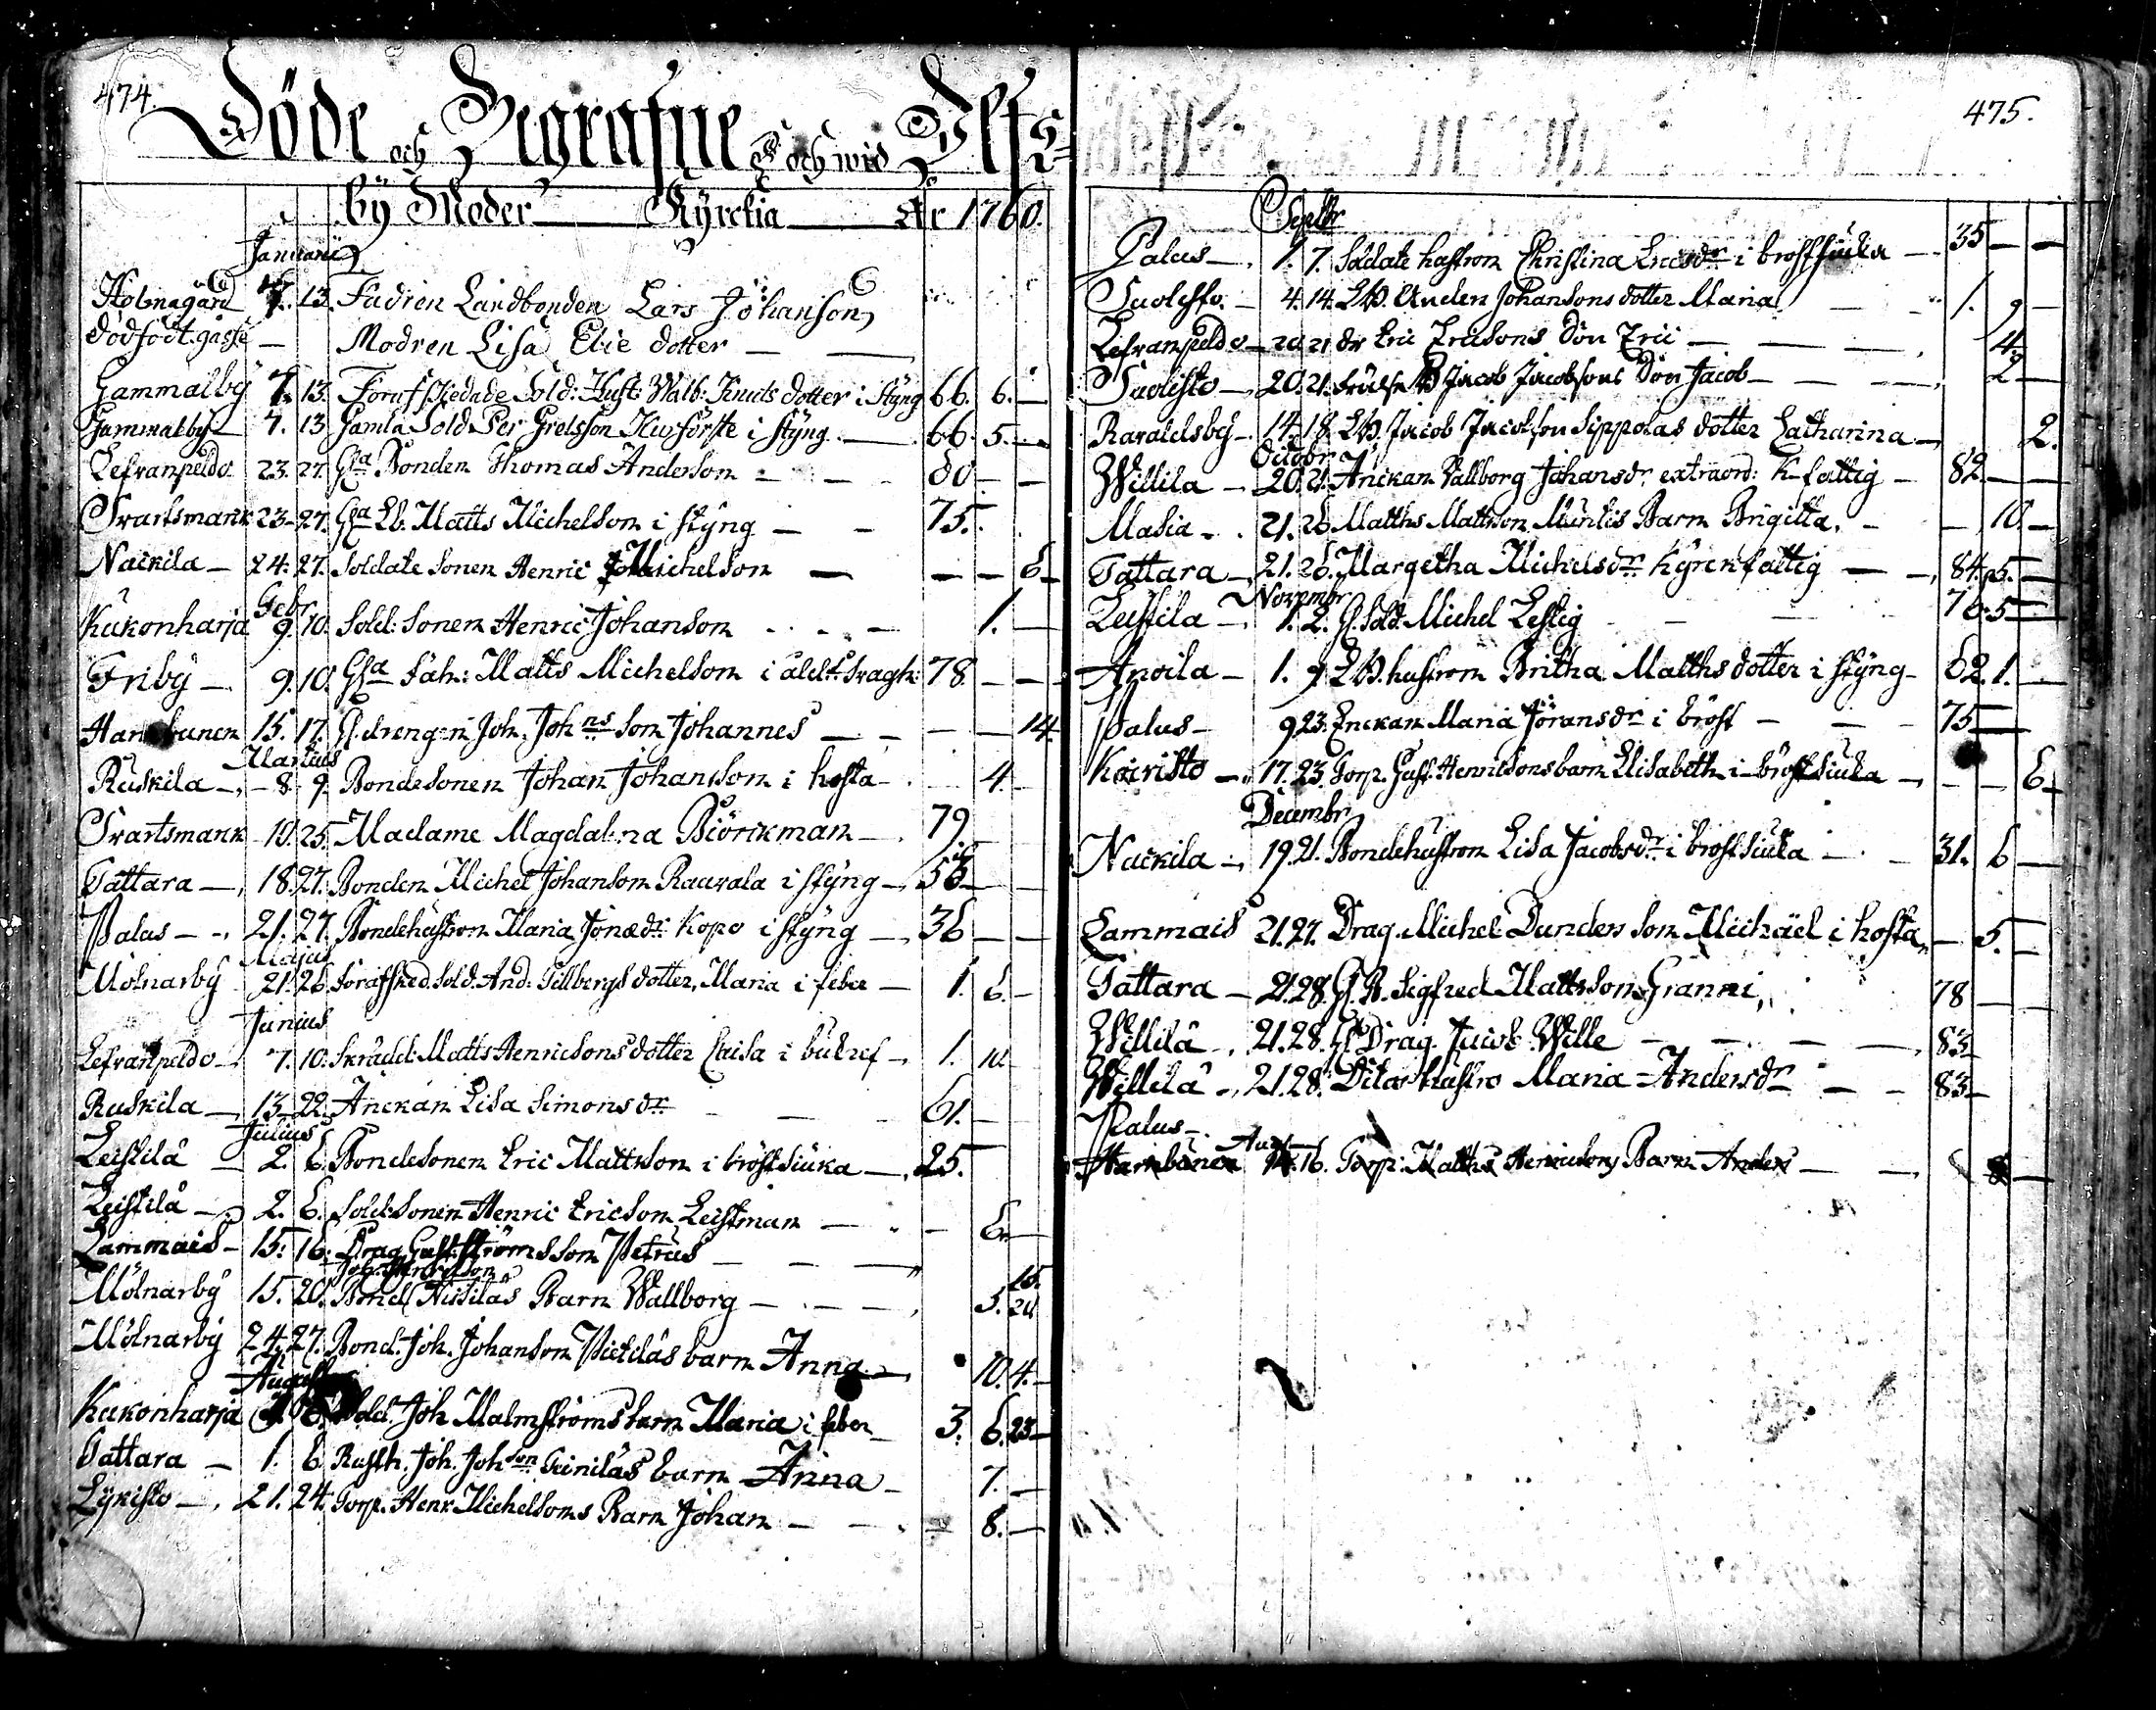 474.
Döde och Begrafne i och wid Ulfs-
by Moder Kyrckia År 1760.
Januarii
Holmagård 7. 13. Fadren Landbonden Lars Johanson
dödfödt gåsse — Modren Lisa Elie dotter —
Gammalby 7. 13. Forafskedade Sold: Hust: Walb: Knuts dotter i styng 66. 6. —
Gammalby 7. 13 Gamla Sold Per Grelsson i styng — 66. 5.
Lefranpeldo 23. 27. Gla Bonden Thomas Anderson — 80 — —
Svartsmark 23. 27. Gla Lb. Matts Michelson i styng — 75.
Nackila — 24. 27. Soldate Sonen Henric Michelson — — — 6
Febr
Kukonharja 9. 10. Sold: Sonen Henric Johanson — 1. —
Friby — 9. 10. Gla Matts Michelson i ålds 78 — —
15. 17. drengen Joh. Johns Son Johannes — — — 14.
Martius
Ruskila — 8. 9. Bondesonen Johan Johansson i hosta — 4. —
Svartsmark 10. 25. Madame Magdalena Biörckman — 79. —
Tattara — 18. 27. Bonden Michel Johanson Raavala i styng — 53 —
Palus — 21. 27. Bondehustron Maria Jonædr Kopo i styng — 36 — —
Majus
Molnarby 21. 26. Forafsked. Sold. And: Tillbergs dotter, Maria i feber — 1. 6. —
Junius
Lefranpeldo — 7. 10. Skrädd: Matts Henricsons dotter Caisa i bukref — 1. 10.
Ruskila — 13. 22. Änckan Lisa Simonsdr — 61. —
Julius
Leistila — 2. 6. Bondesonen Eric Mattsson i bröstsiuka — 25.
Leistila — 2. 6. Sold: Sonen Henric Ericson Leistman — — 6. —
Lammais — 15. 16. Drag. Gust. Ströms son Petrus — 15.
Joh. Henricson
Molnarby 15. 20. Bond. Barn Wallborg — 5. 20
Molnarby 24. 27. Bond. Joh. Johanson barn Anna — 10. 4. —
August
Kukonharja 6. Sold. Joh Malmströms barn Maria i feber 3. 6. 23 —
Tattara — 1. 6 Rusth. Joh. Johson barn Anna — 7. —
Lykisto — 21. 24. Torp. Henr. Michelsons Barn Johan — 8. —
475.
Septbr
Palus — 1. 7. Soldate hustron Christina Ericsdr i bröstsiuka — 35 — —
Suolisto. — 4. 14. Johansons dotter Maria 1. 9 —
Lefranpeldo — 20 21 Eric Ericsons Son Eric — 4.
Suolisto — 20. 21. Jacob Jacobsons Son Jacob — 2 —
Haraldsby — 14. 18. Lb. Jacob Jacobson Sippolas dotter Catharina — 2.
Octobr
Willila — 20. 21. Änckan Vallborg Johansdr extraord: K-fattig — 82. — —
Masia — 21. 26. Matths Mattson Barn Brigitta. — 10. —
Tattara — 21. 26. Margetha Michelsdr Kyrckfattig — 84. 5. —
Novembr
Leistila — 1. 2. Gl. Sold. Michel Lestig — 76. 5 —
Anoila — 1. 9 Lb. hustron Britha Matths dotter i styng — 62. 1. —
Palus — 9 23. Enckan Maria Jöransdr i bröst — 75 —
Koivisto — 17. 23. Torp. Gust. Henricsons barn Elisabeth i bröstsiuka — — — 6
Decembr
Nackila — 19. 21. Bondehustron Lisa Jacobsdr i bröstsiuka — 31. 6 —
Lammais 21. 27. Drag. Michel Dunders Son Michaël i hosta — 5. —
Tattara — 21. 28. Gl. B. Sigfred Mattsson Granni, 78 —
Willila — 21. 28. Gl Drag. Jacob Wille — 83
Willila — 21. 28. hustro Maria Andersdr — 83 —
Palus —
Aug
Hambönen 14. 16. Torp. Matths Henricsons Barn Anders — 8 —